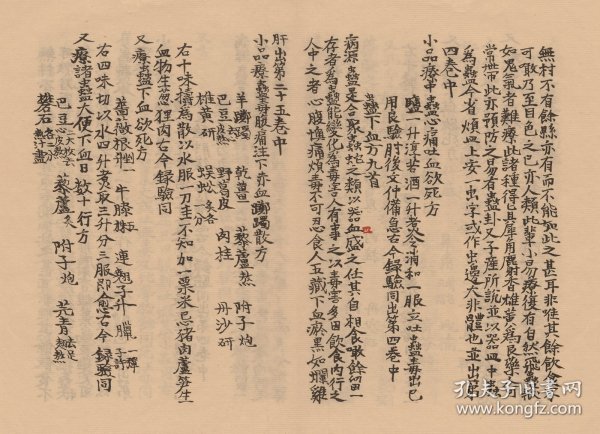 無村不有餘縣亦有而不能如此之甚耳非唯其餘飲食
可敢乃至目色之已亦人類此輩小易療復有自然飛蠱
如鬼氣者難療此諸種得真犀角麝香雄黃為良藥
當世中此亦預防之易有蠱卦又子產所說並以器皿中蟲
為蠱今省煩皿上安一虫字或作出邊大非體也並出第
四卷中
小品療中蠱心痛吐血欲死方
鹽一升淳苦酒一升煮令消和一服立吐蠱毒出已
用良驗肘後文仲備急古今錄驗同出第四卷中
蠱下血方九首
病源蠱是合聚蟲蛇之類以器皿盛之任其自相食噉餘留一
存者為蠱能變化為毒害人有事之以毒害多因飲食內行之
人中之者心腹懊痛煩毒不可忍食人五臟下血瘀黑如爛雞
肝出第二十五卷中
小品療蠱毒腹痛注下赤血躑躅散方
羊躑躅 乾薑 藜蘆熬 附子炮
巴豆 野葛皮 肉桂 丹沙研
雄黃研 蜈蚣
右十味擣為散以水服一刀圭不知加一粟米忌豬肉蘆笋生
血物生葱狸肉古今錄驗同
又療蠱下血欲死方
黃 牛膝 連翹子
右四味切以水四升煮取三升分三服即愈古今錄驗同
又療諸蠱人便下血日數十行方
巴豆 藜蘆 附子炮 芫青
礬石
孔夫子旧書網
www.kongfz.com